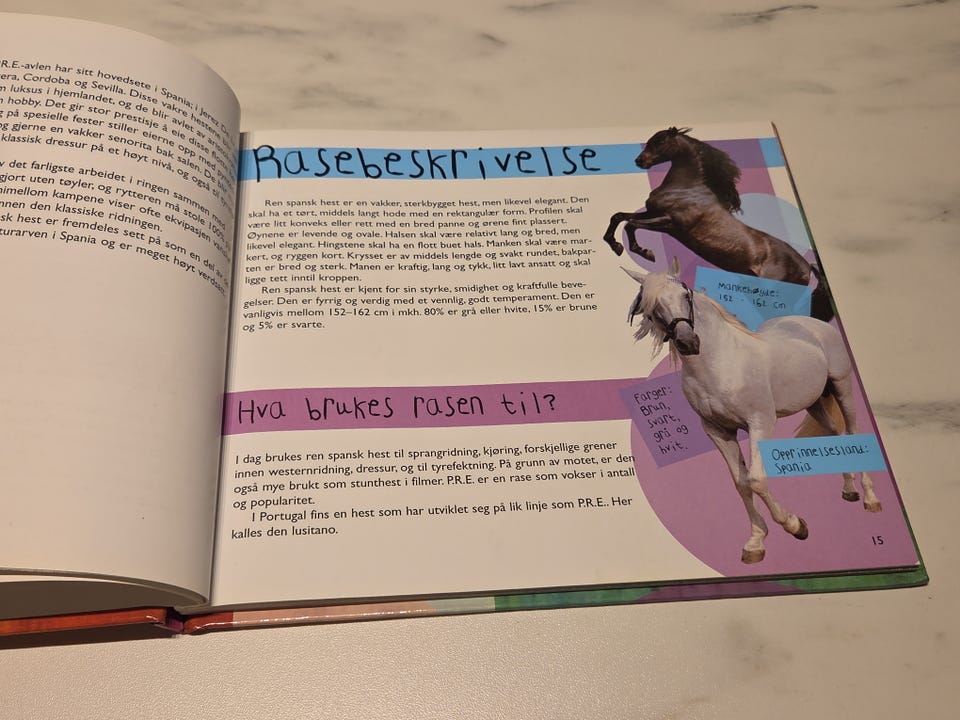 R.E.-avlen har sitt hovedsete i Spania; i Jerez De
era, Cordoba og Sevilla. Disse vakre hestene
m luksus i hjemlandet, og de blir avlet av
n hobby. Det gir stor prestisje å eie disse flotte
g på spesielle fester stiller eierne opp med
og gjerne en vakker senorita bak salen. De
klassisk dressur på et høyt nivå, og også til
v det farligste arbeidet i ringen sammen med
gjort uten tøyler, og rytteren må stole 100%
nimellom kampene viser ofte ekvipasjen
innen den klassiske ridningen.
sk hest er fremdeles sett på som en del av
turarven i Spania og er meget høyt verdsatt
Rasebeskrivelse
Ren spansk hest er en vakker, sterkbygget hest, men likevel elegant. Den
skal ha et tørt, middels langt hode med en rektangulær form. Profilen skal
være litt konveks eller rett med en bred panne og ørene fint plassert.
Øynene er levende og ovale. Halsen skal være relativt lang og bred, men
likevel elegant. Hingstene skal ha en flott buet hals. Manken skal være mar-
kert, og ryggen kort. Krysset er av middels lengde og svakt rundet, bakpar-
ten er bred og sterk. Manen er kraftig, lang og tykk, litt lavt ansatt og skal
ligge tett inntil kroppen.
Ren spansk hest er kjent for sin styrke, smidighet og kraftfulle beve-
gelser. Den er fyrrig og verdig med et vennlig, godt temperament. Den er
vanligvis mellom 152–162 cm i mkh. 80% er grå eller hvite, 15% er brune
og 5% er svarte.
Mankehøyde:
152 - 162 cm
Hva brukes rasen til?
I dag brukes ren spansk hest til sprangridning, kjøring, forskjellige grener
innen westernridning, dressur, og til tyrefektning. På grunn av motet, er den
også mye brukt som stunthest i filmer. P.R.E. er en rase som vokser i antall
og popularitet.
I Portugal fins en hest som har utviklet seg på lik linje som P.R.E.. Her
kalles den lusitano.
Farger:
Brun,
svart,
grå og
hvit.
Opprinnelsesland:
Spania
15